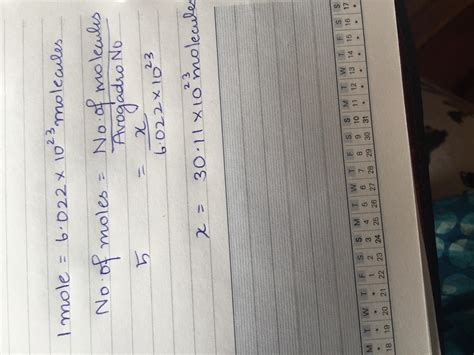 1 mole = 6.022 × 10²³ molecules
No. of moles = No. of molecules / Avogadro No
5 = x / 6.022 × 10²³
x = 30.11 × 10²³ molecules
M T W T F S S M T W T F S S M T W T F S S
* * * * 1 2 3 4 5 6 7 8 9 10 11 12 13 14 15 16 17
18 19 20 21 22 23 24 25 26 27 28 29 30 31 * * * * * * *